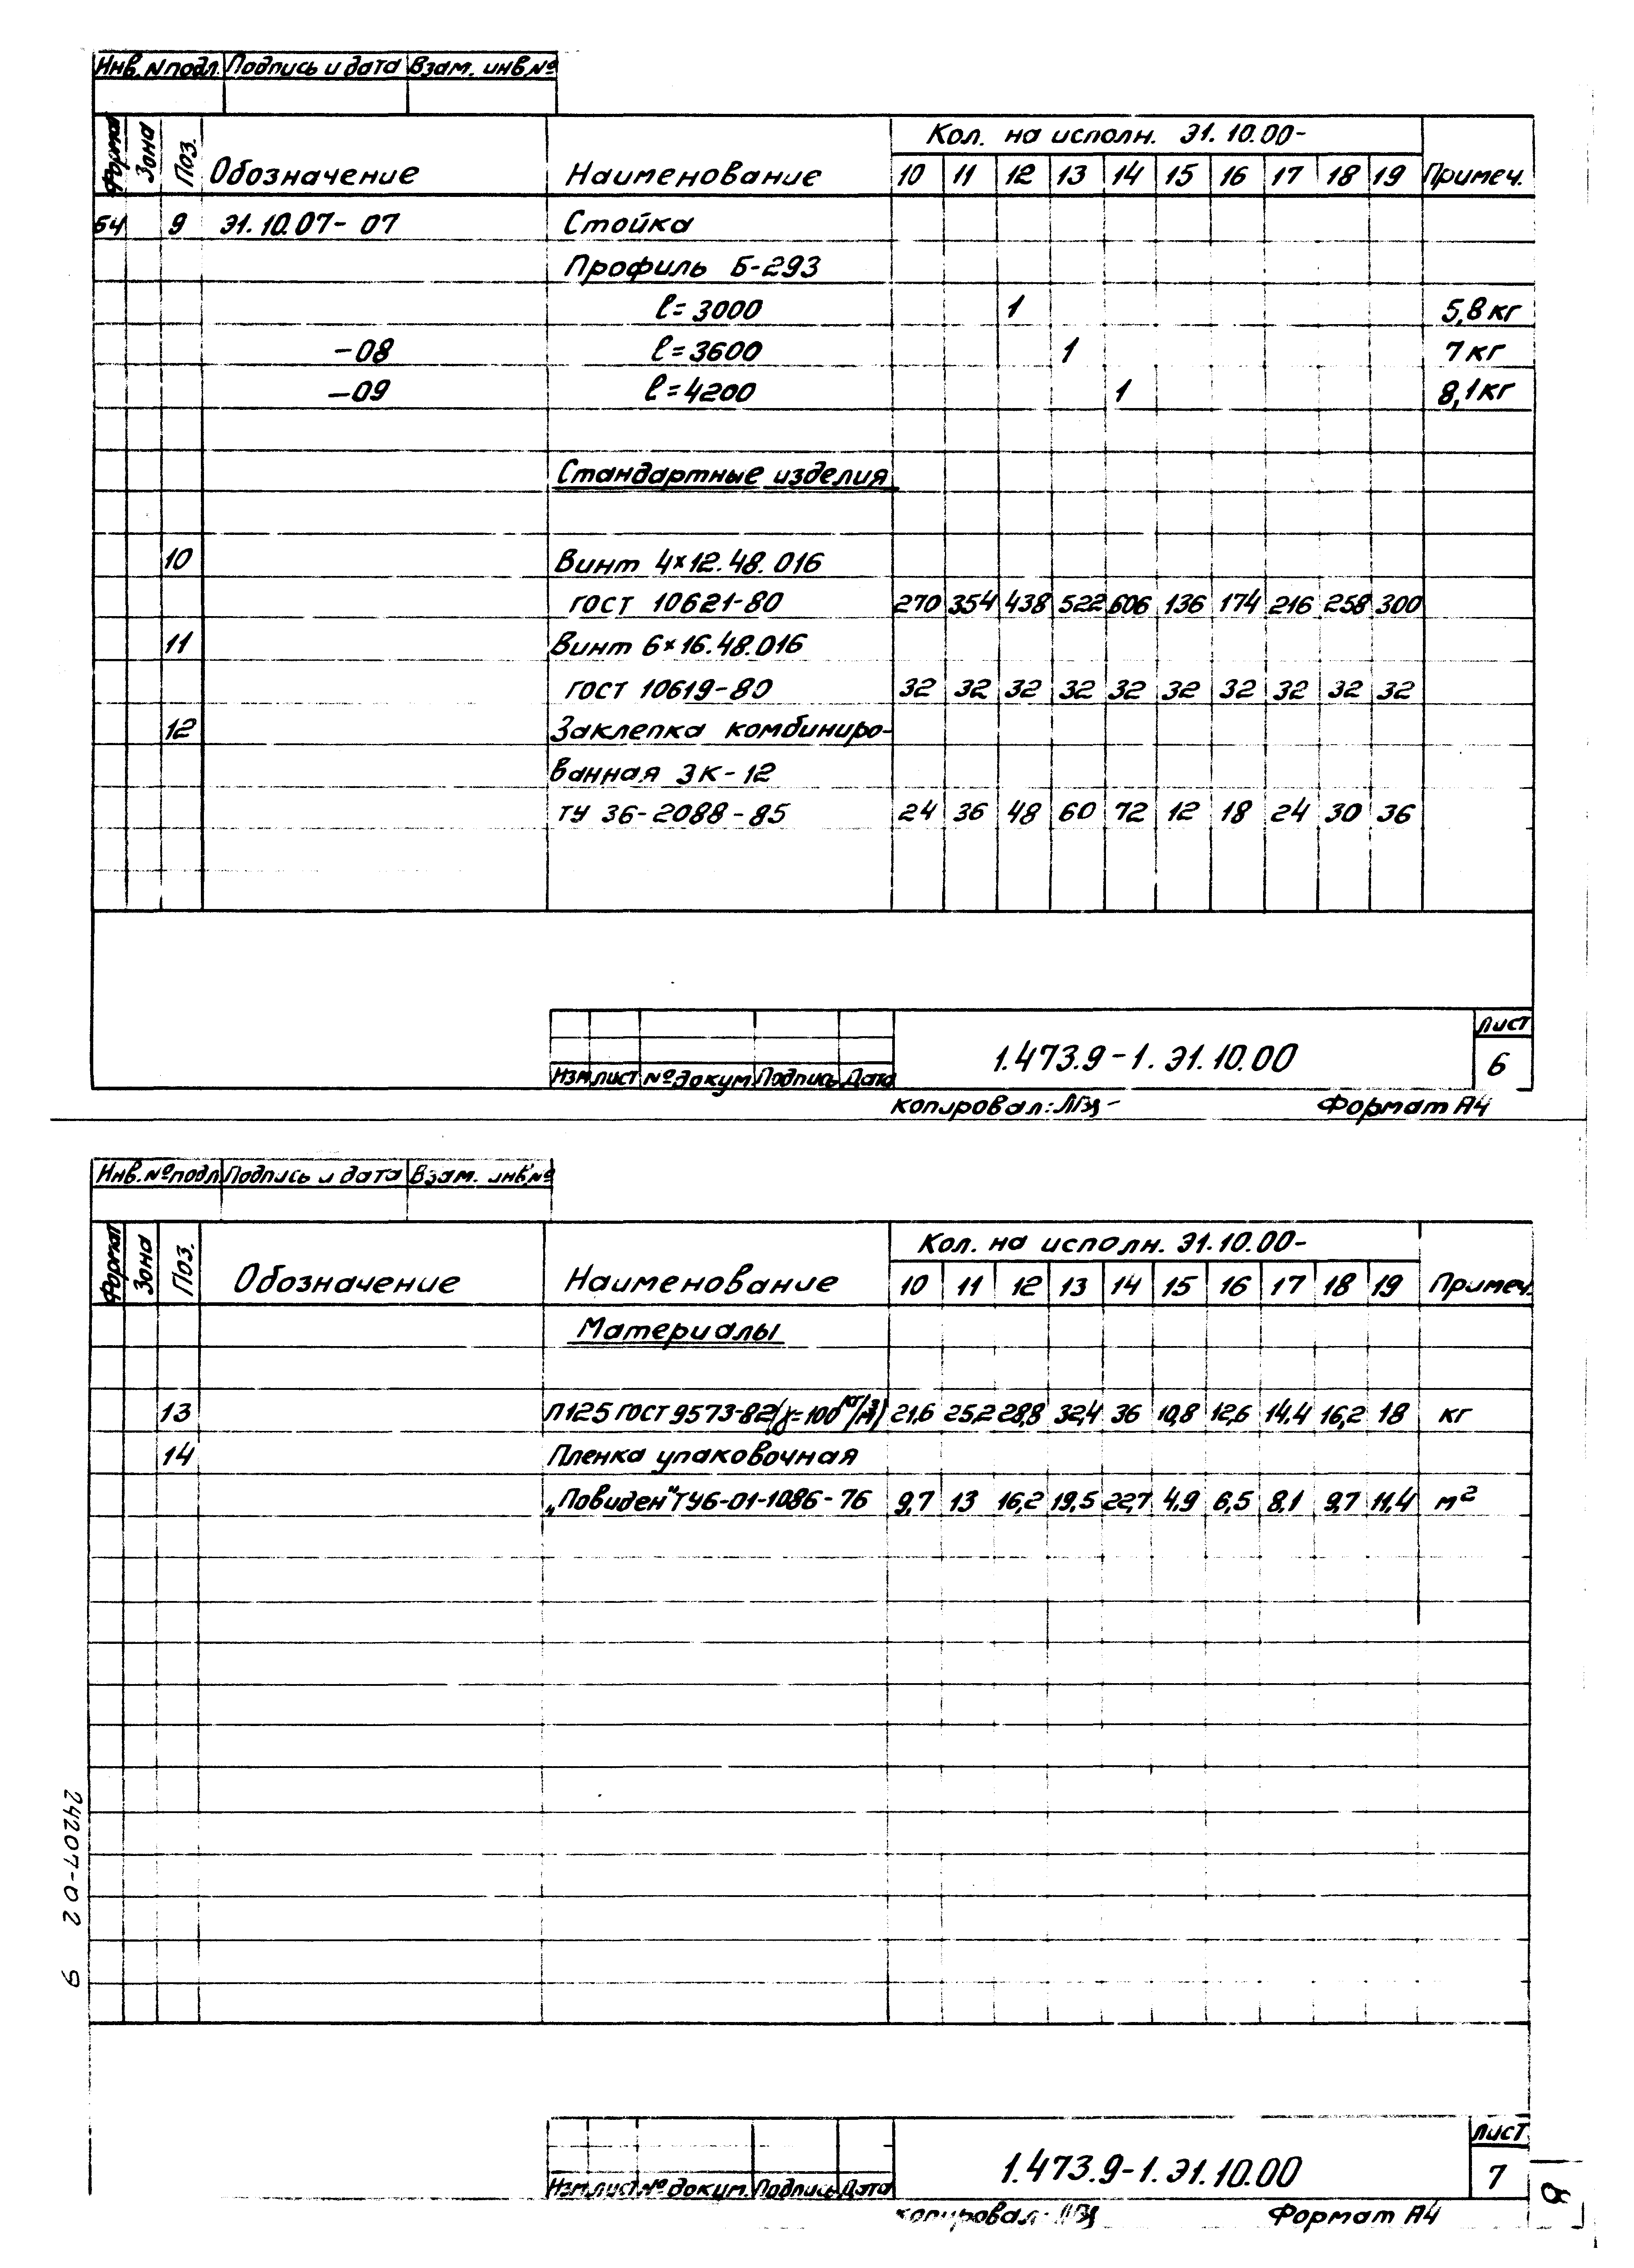 Инв.№подл. Подпись и дата Взам. инв.№
Формат Зона Поз. Обозначение Наименование Кол. на исполн. Э1.10.00- Примеч.
10 11 12 13 14 15 16 17 18 19
Б4 9 Э1.10.07-07 Стойка
Профиль Б-293
ℓ=3000 1 5,8 кг
-08 ℓ=3600 1 7 кг
-09 ℓ=4200 1 8,1 кг
Стандартные изделия
10 Винт 4×12.48.016
ГОСТ 10621-80 270 354 438 522 606 136 174 216 258 300
11 Винт 6×16.48.016
ГОСТ 10619-80 32 32 32 32 32 32 32 32 32 32
12 Заклепка комбиниро-
ванная ЗК-12
ТУ 36-2088-85 24 36 48 60 72 12 18 24 30 36
1.473.9-1.Э1.10.00
Лист
6
Изм. Лист № докум. Подпись Дата
Копировал: Формат А4
Инв.№подл. Подпись и дата Взам. инв.№
Формат Зона Поз. Обозначение Наименование Кол. на исполн. Э1.10.00- Примеч.
10 11 12 13 14 15 16 17 18 19
Материалы
13 П125 ГОСТ 9573-82(γ=100 кг/м³) 21,6 25,2 28,8 32,4 36 10,8 12,6 14,4 16,2 18 кг
14 Пленка упаковочная
„Повиден" ТУ6-01-1086-76 9,7 13 16,2 19,5 22,7 4,9 6,5 8,1 9,7 11,4 м²
24207-02 9
1.473.9-1.Э1.10.00
Лист
7
Изм. Лист № докум. Подпись Дата
Копировал: Формат А4
8